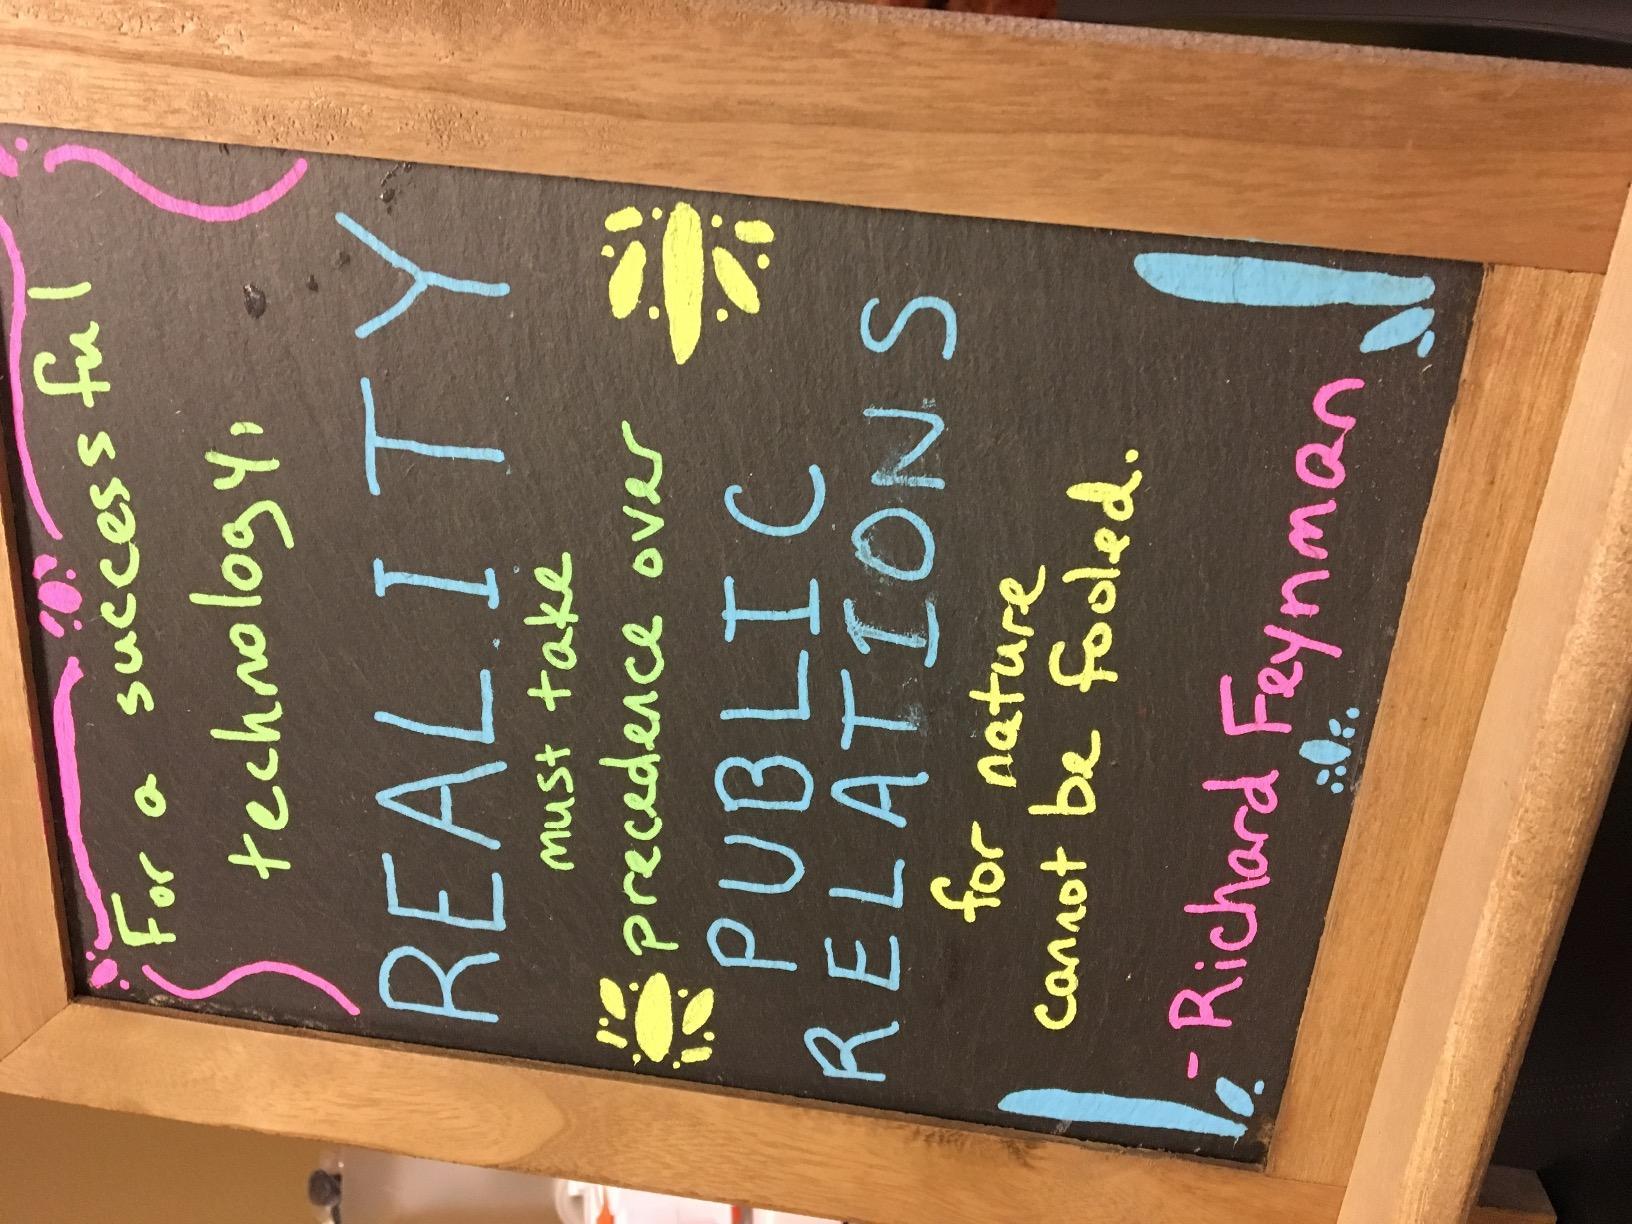 For a successful
technology,
REALITY
must take
precedence over
PUBLIC
RELATIONS
for nature
cannot be fooled.
- Richard Feynman